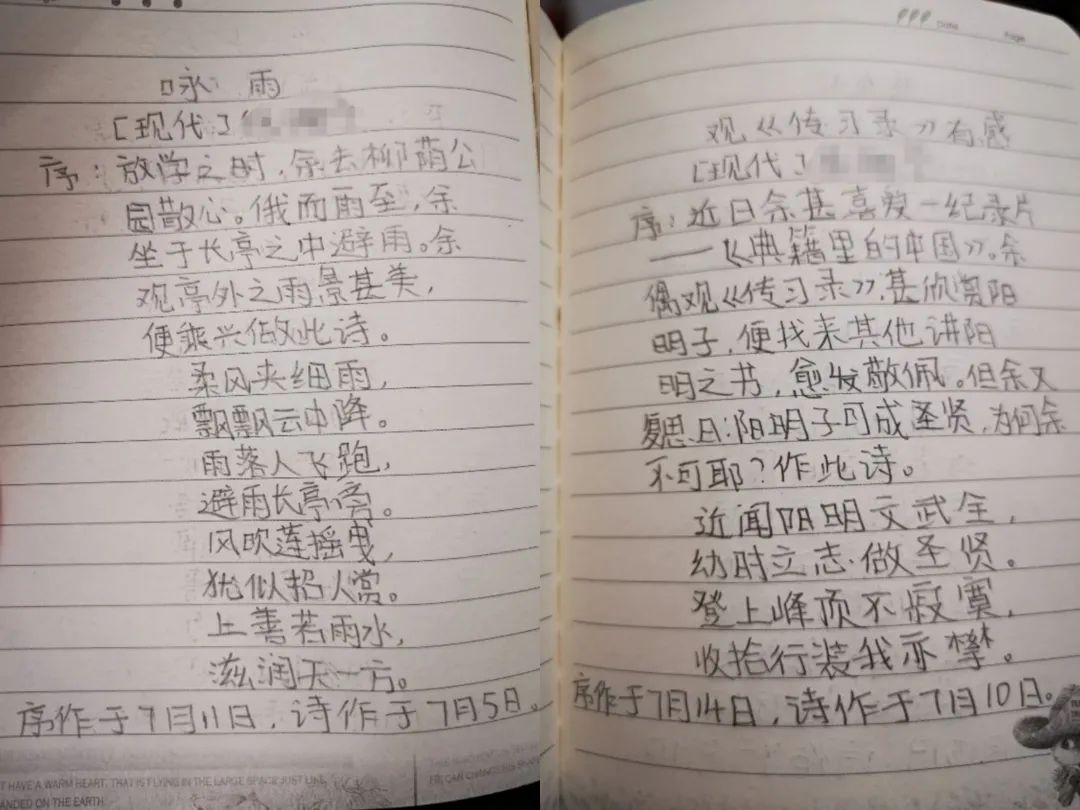 咏 雨
[现代]
序：放学之时，余去柳荫公
园散心。俄而雨至，余
坐于长亭之中避雨。余
观亭外之雨景甚美，
便乘兴做此诗。
柔风夹细雨，
飘飘云中降。
雨落人飞跑，
避雨长亭旁。
风吹莲摇曳，
犹似招人赏。
上善若雨水，
滋润天一方。
序作于7月11日，诗作于7月5日。
T HAVE A WARM HEART, THAT IS FLYING IN THE LARGE SPACE JUST LIKE
ANDED ON THE EARTH
Date
Page
观《传习录》有感
[现代]
序：近日余甚喜爱一纪录片
——《典籍里的中国》。余
偶观《传习录》，甚欣赏阳
明子，便找来其他讲阳
明之书，愈发敬佩。但余又
复思曰：阳明子可成圣贤，为何余
不可耶？作此诗。
近闻阳明文武全，
幼时立志做圣贤。
登上峰顶不寂寞，
收拾行装我亦攀。
序作于7月14日，诗作于7月10日。